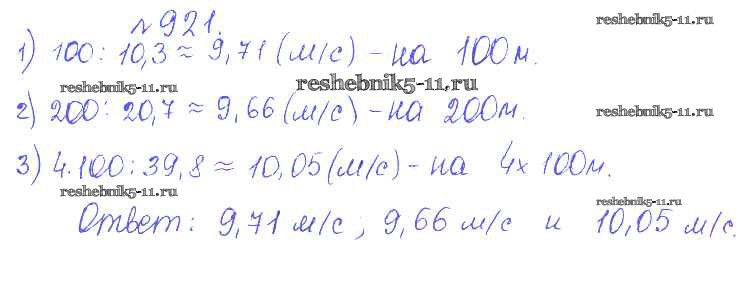 №921. reshebnik5-11.ru
1) 100 : 10,3 ≈ 9,71 (м/с) – на 100 м.
reshebnik5-11.ru reshebnik5-11.ru
2) 200 : 20,7 ≈ 9,66 (м/с) – на 200м. reshebnik5-11.ru
3) 4·100 : 39,8 ≈ 10,05 (м/с) – на 4х100м.
reshebnik5-11.ru reshebnik5-11.ru
Ответ: 9,71 м/с ; 9,66 м/с и 10,05 м/с.